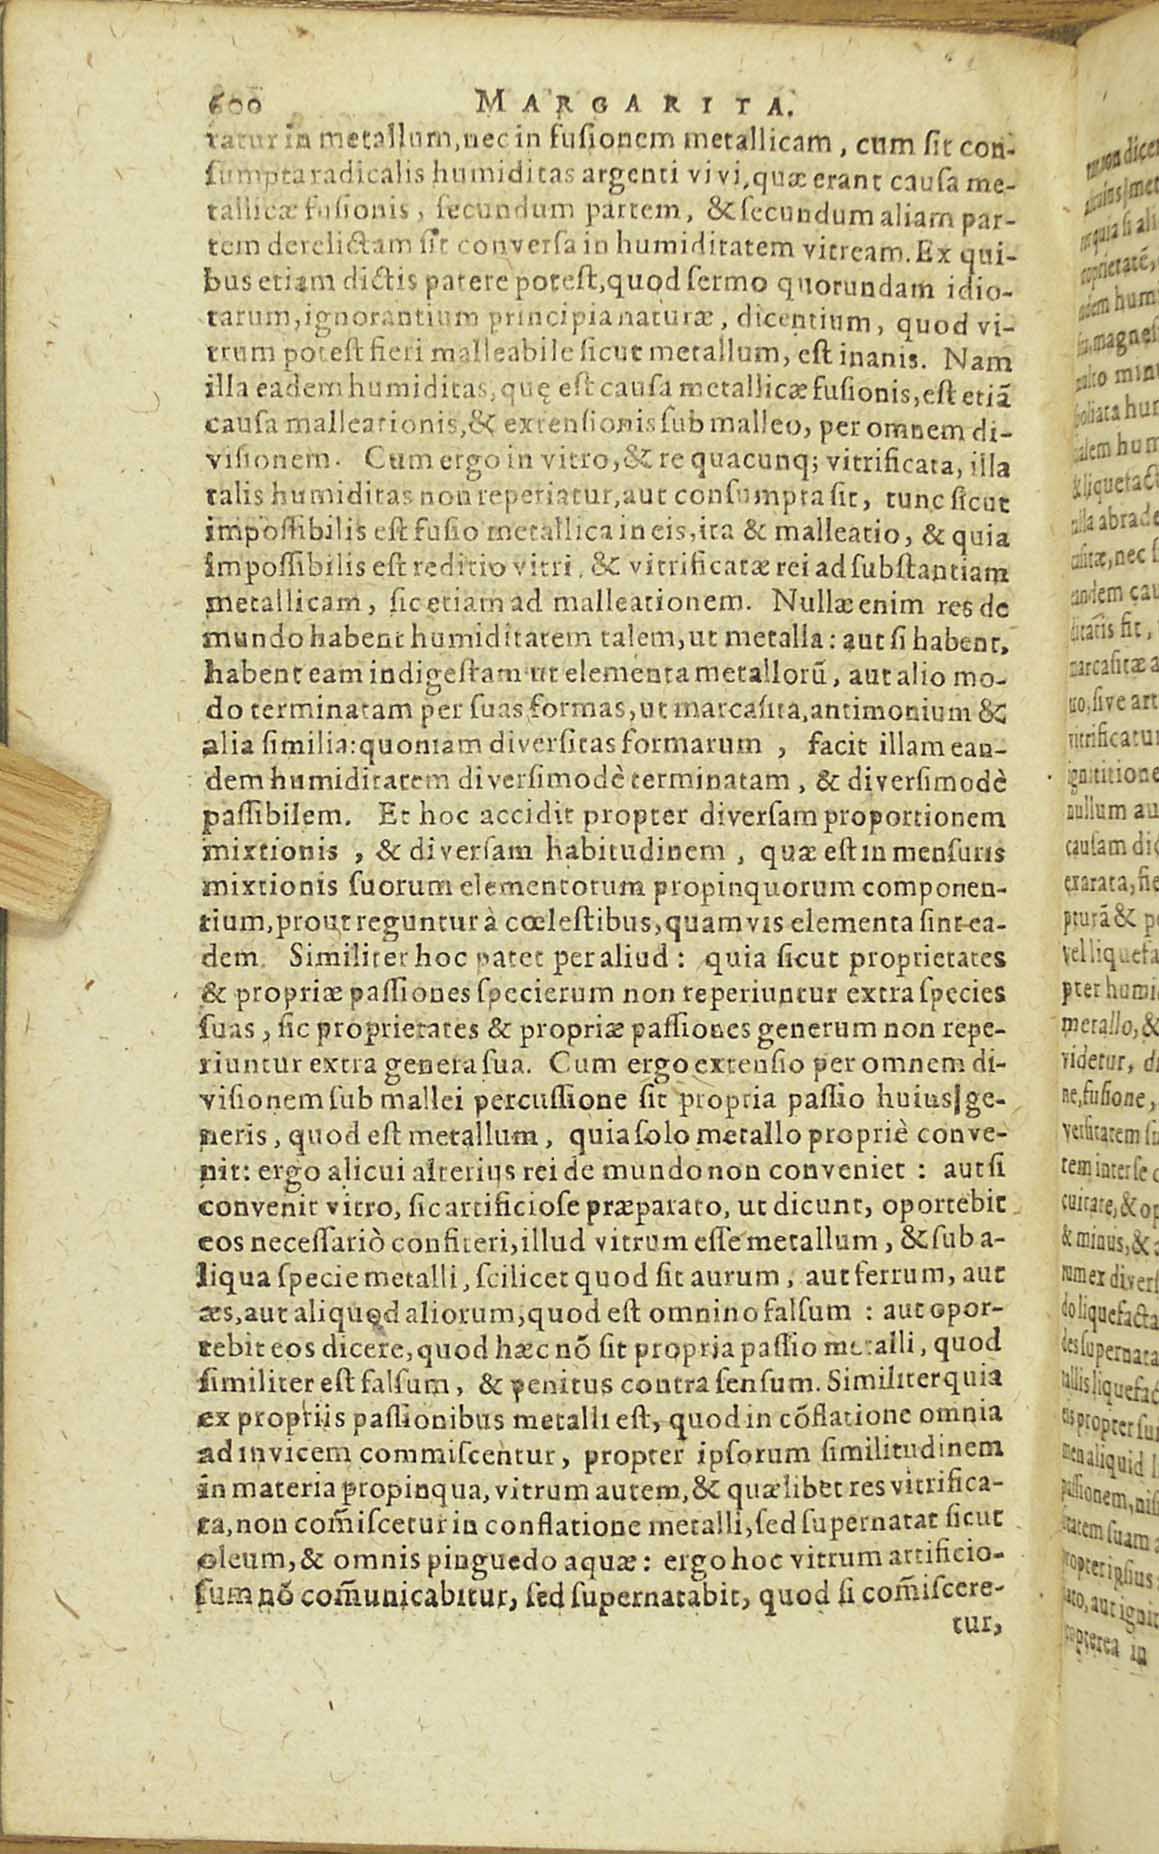 600 MARGARITA.
tatur in metallum, nec in fusionem metallicam, cum sit con-
sumpta radicalis humiditas argenti vivi, quæ erant causa me-
tallicæ fusionis, secundum partem, & secundum aliam par-
tem derelictam sit conversa in humiditatem vitream. Ex qui-
bus etiam dictis patere potest, quod sermo quorundam idio-
tarum, ignorantium principia naturæ, dicentium, quod vi-
trum potest fieri malleabile sicut metallum, est inanis. Nam
illa eadem humiditas, quę est causa metallicæ fusionis, est etiã
causa malleationis, & extensionis sub malleo, per omnem di-
visionem. Cum ergo in vitro, & re quacunq; vitrificata, illa
talis humiditas non reperiatur, aut consumpta sit, tunc sicut
impossibilis est fusio metallica in eis, ita & malleatio, & quia
impossibilis est reditio vitri, & vitrificatæ rei ad substantiam
metallicam, sic etiam ad malleationem. Nullæ enim res de
mundo habent humiditatem talem, ut metalla: aut si habent,
habent eam indigestam ut elementa metallorũ, aut alio mo-
do terminatam per suas formas, ut marcasita, antimonium &
alia similia: quoniam diversitas formarum, facit illam ean-
dem humiditatem diversimodè terminatam, & diversimodè
passibilem. Et hoc accidit propter diversam proportionem
mixtionis, & diversam habitudinem, quæ est in mensuris
mixtionis suorum elementorum propinquorum componen-
tium, prout reguntur à cœlestibus, quamvis elementa sint ea-
dem. Similiter hoc patet per aliud: quia sicut proprietates
& propriæ passiones specierum non reperiuntur extra species
suas, sic proprietates & propriæ passiones generum non repe-
riuntur extra genera sua. Cum ergo extensio per omnem di-
visionem sub mallei percussione sit propria passio huius ge-
neris, quod est metallum, quia solo metallo propriè conve-
nit: ergo alicui alterius rei de mundo non conveniet: aut si
convenit vitro, sic artificiose præparato, ut dicunt, oportebit
eos necessariò confiteri, illud vitrum esse metallum, & sub a-
liqua specie metalli, scilicet quod sit aurum, aut ferrum, aut
æs, aut aliquod aliorum, quod est omnino falsum: aut opor-
tebit eos dicere, quod hæc nõ sit propria passio metalli, quod
similiter est falsum, & penitus contra sensum. Similiter quia
ex propriis passionibus metalli est, quod in cõflatione omnia
ad invicem commiscentur, propter ipsorum similitudinem
in materia propinqua, vitrum autem, & quælibet res vitrifica-
ta, non com̃iscetur in conflatione metalli, sed supernatat sicut
oleum, & omnis pinguedo aquæ: ergo hoc vitrum artificio-
sum nõ com̃unicabitur, sed supernatabit, quod si com̃iscere-
tur,